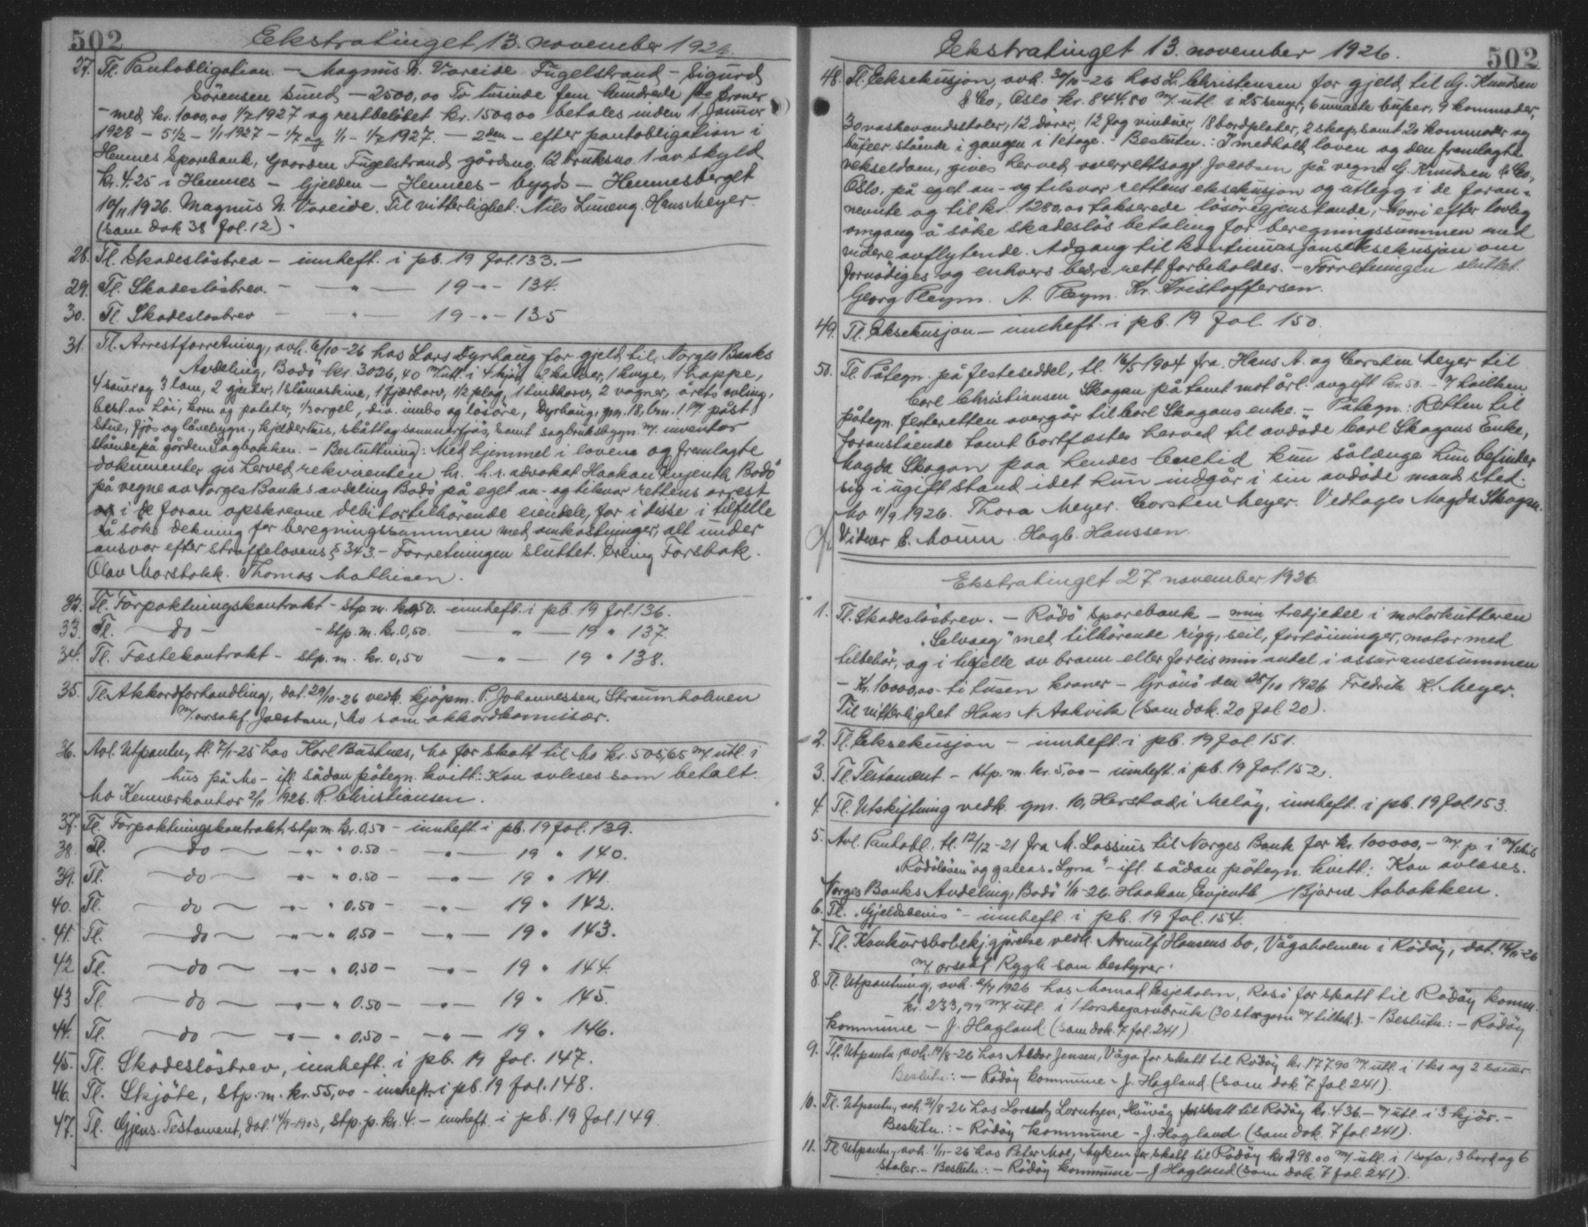 502
Ekstratinget 13. november 1926.
27. Tl. Pantobligation — Magnus N. Voreide Fugelstrand – Sigurd
Sörensen Sund — 2500,00 To tusinde fem hundrede kroner
– med kr. 1000,00 1/7 1927 og restbelöbet kr. 1500,00 betales inden 1 januar
1928 – 5½ – 1/1 1927 – 1/7 og 1/1 – 1/7 1927. — 2den – efter pantobligation i
Hemnes Sparebank, Gaarden Fugelstrand gårdsno. 12 bruksno. 1 av skyld
kr. 4.25 i Hemnes – Gjelden – Hemnes – bygds – Hemnesberget
10/11 1926. Magnus N. Voreide. Til vitterlighet: Nils Limeng. Hans Meyer.
(som dok 38 fol. 12).
28. Tl. Skadeslösbrev – innheft. i pb. 19 fol. 133. –
29. Tl. Skadeslösbrev. – " — 19 – " – 134.
30. Tl. Skadeslösbrev – " — 19 – " – 135
31. Tl. Arrestforretning, avh. 6/10-26 hos Lars Dyrhaug for gjeld til Norges Banks
Avdeling, Bodö kr. 3026,40 m/ utl. i 4 kjör, 2 kalver, 1 kvige, 1 hoppe,
4 sauer og 3 lam, 2 gjeiter, 1 slåmaskine, 1 fjærharv, 1/2 plög, 1 tindharv, 2 vogner, årets avling,
best. av höi, korn og poteter, 1/2 orgel, div. innbo og lösöre, Dyrhaug, gn. 18, bn. 1 m/ påst.
Stue, fjös og låvebygn, kjelderhus, skåttag sommerfjös samt sagbruksbygn. m. inventar
stående på gården Sagbakken. – Beslutning: Med hjemmel i lovene og fremlagte
dokumenter gis herved rekvirenten hr. h.r. advokat Haakon Evjenth Bodö
på vegne av Norges Banks avdeling Bodö på eget an- og tilsvar rettens arrest
i de foran opskrevne debitor tilhörende eiendele, for i disse i tilfelle
å söke dekning for beregningssummen med omkostninger, alt under
ansvar efter straffelovens § 343. – Forretningen sluttet. Dreng Forsbak.
Olav Marstokk. Thomas Mathisen.
32. Tl. Forpaktningskontrakt – stp. m. kr. 0,50. innheft. i pb 19 fol. 136.
33. Tl. — do — – stp. m. kr. 0,50. — " — 19 " 137.
34. Tl. Fæstekontrakt – stp. m. kr. 0,50 — " — 19 " 138.
35. Tl. Akkordforhandling, dat. 29/10-26 vedk. kjöpm. P. Johannessen, Straumholmen
m/ orsakf. Joestsen, Mo som akkordkomisær.
36. Avl. Utpantn, tl. 7/1-25 hos Karl Båstnes, Mo for skatt til Mo kr. 505,65 m/ utl. i
hus på Mo – ifl. sådan påtegn. kvitt: Kan avleses som betalt.
Mo Kemnerkontor 2/11 1926. R. Christiansen.
37. Tl. Forpaktningskontrakt, stp. m. kr. 0,50 – innheft. i pb. 19 fol. 139.
38. Tl. — do — – " – " 0.50 – – " – 19 " 140.
39. Tl. — do — – " – " 0.50 – – " – 19 " 141.
40. Tl. — do — – " – " 0.50 – – " – 19 " 142.
41. Tl. — do — – " – " 0,50 – – " – 19 " 143.
42 Tl. — do — – " – " 0,50 – – " – 19 " 144
43 Tl. — do — – " – " 0.50 – – " – 19 " 145.
44. Tl. — do — – " – " 0.50 – – " – 19 " 146.
45. Tl. Skadeslösbrev, innheft. i pb. 19 fol. 147.
46. Tl. Skjöte, stp. m. kr. 55,00 – innheft. i pb. 19 fol. 148.
47. Tl. Gjens. Testament, dat. 14/9-1903, stp. p. kr. 4. – innheft. i pb. 19 fol 149.
Ekstratinget 13. november 1926.
502
48. Tl. Eksekusjon, avh. 30/10-26 hos L. Christensen for gjeld til G. Knudsen
& Co, Oslo kr. 844.80 m/ utl. i 25 senger, 6 umalte bufeer, 9 kommoder,
30 vaskevandsstoler, 12 dörer, 12 fag vinduer, 18 bordplater, 2 skap, samt 20 kommoder og
bufeer stående i gangen i 1 etage. Beslutn.: I medhold loven og den fremlagte
vekseldom, gives herved overrettssagf. Joestsen på vegne G. Knudsen & Co,
Oslo, på eget an- og tilsvar rettens eksekusjon og utlegg i de foran-
nevnte og til kr. 1280,00 takserede lösöregjenstande, hvori efter lovlig
omgang å söke skadeslös betaling for beregningssummen med
videre avflytende. Adgang til kontinuasjonseksekusjon om
fornödiges og enhvers bedre rett forbeholdes. – Forretningen sluttet.
Georg Pleym. A. Pleym. Kr. Kristoffersen.
49. Tl. Eksekusjon – innheft. i pb. 19 fol 150.
50. Tl. Påtegn. på festeseddel, tl. 16/5-1904 fra Hans A. og Corsten Meyer til
Carl Christiansen Skogan på tomt mot årl. avgift kr. 50. – m/ hvilken
påtegn. festeretten overgår til Carl Skogans enke. – Påtegn: Retten til
foranstående tomt bortfæstes herved til avdöde Carl Skogans Enke,
Magda Skogan paa hendes levetid kun sålænge hun befinder
sig i ugift stand idet hun indgår i sin avdöde mands sted.
Mo 11/9 1926. Thora Meyer. Corsten Meyer. Vedtages Magda Skogan.
Vidner E. Moum. Hagb. Hanssen.
Ekstratinget 27 november 1926.
1. Tl. Skadeslösbrev. – Rödö Sparebank – min tredjedel i motorkutteren
„Selvaag" med tilhörende rigg, seil, fortöininger, motor med
tilbehör, og i tilfelle av brann eller forlis min andel i assuransesummen
– Kr. 10000,00 – ti tusen kroner – Grönö den 25/10 1926 Fredrik K. Meyer.
Til vitterlighet Hans N. Aakvik (som dok. 20 fol 20).
2. Tl. Eksekusjon – innheft i pb. 19 fol. 151.
3. Tl. Testament – stp. m. kr. 5,00 – innheft. i pb. 19 fol. 152.
4. Tl. Utskiftning vedk. gn. 10, Herstad i Melöy, innheft. i pb. 19 fol 153.
5. Avl. Pantobl. tl. 12/12-21 fra M. Lossius til Norges Bank for kr. 100000,– m/ p. i m/skib
„Rödölöven" og galeas „Lyra" – ifl. sådan påtegn. kvitt: Kan avleses.
Norges Banks Avdeling, Bodö 1/11-26. Haakon Evjenth Bjarne Aabakken.
6. Tl. „Gjeldsbevis" – innheft. i pb. 19 fol. 154.
7. Tl. Konkursbobekjgjörelse vedk. Arnulf Hansens bo, Vågaholmen i Rödöy, dat. 14/11-26
m/ orsakf Rygh som bestyrer.
8. Tl. Utpantning, avh. 2/9 1926 hos Monrad Esjeholm, Rosö for skatt til Rödöy komm.
kr. 233,99 m/ utl. i 1 torskegarnbruk (30 st. garn m/ tilbeh.). – Beslutn.: – Rödöy
kommune – J. Hagland (som dok. 7 fol. 241)
9. Tl. Utpantn, avh. 19/8-26 hos Aldor Jensen, Våga for skatt til Rödöy kr. 177.90 m/ utl. i 1 ku og 2 sauer.
Beslutn: – Rödöy kommune – J. Hagland (som dok 7 fol 241).
10. Tl. Utpantn, avh. 21/8-26 hos Lorentz Lorntzen, Höivåg for skatt til Rödöy kr. 436 – m/ utl. i 3 kjör. –
Beslutn.: – Rödöy kommune – J. Hagland (som dok. 7 fol 241).
11. Tl Utpantn, avh. 1/11-26 hos Peter Moe, Myken for skatt til Rödöy kr. 298.00 m/ utl. i 1 sofa, 3 bord og 6
stoler. – Beslutn: – Rödöy kommune – J Hagland (som dok 7 fol 241).